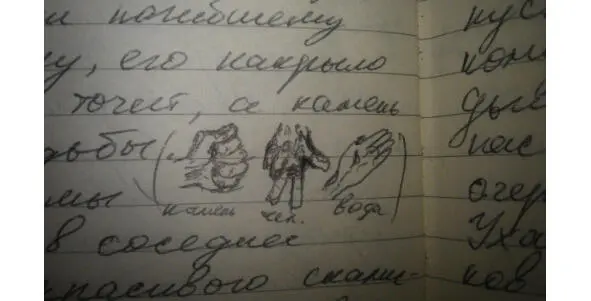 и погибшему
у, его накрыло
точит, а камень
ьбы (
мы
камень чел. вода )
в соседнее
красивого скали-
кус
кон
нас
очер
Уха
ков